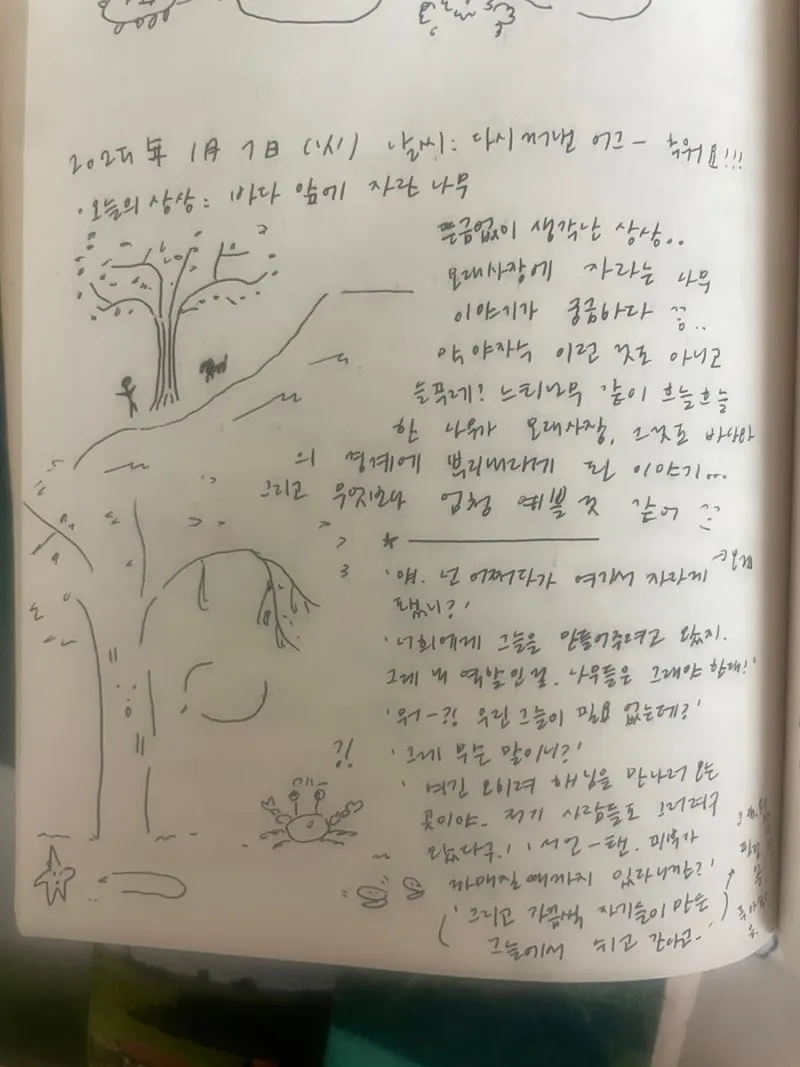 年 1月 7日 날씨: 다시 추워요!!!
·오늘의 상상: 바다 앞에 자란 나무
뜬금없이 생각난 상상..
모래사장에 자라는 나무
이야기가 궁금하다
야자수 이런 것도 아니고
늘푸레? 느티나무 같이 흐늘흐늘
한 나무가 모래사장, 그것도 바다와
의 경계에 뿌리내리게 된 이야기...
그리고 무엇보다 엄청 예쁠 것 같어
*
'얘. 넌 어쩌다가 여기서 자라게
됐니?'
'너희에게 그늘을 만들어주려고 왔지.
그게 내 역할인걸. 나무들은 그래야 한대!'
'워-? 우린 그늘이 필요 없는데?'
'그게 무슨 말이니?'
'여긴 오히려 해님을 만나러 오는
곳이야. 저기 사람들도 그러려구
왔다구!' '서언-탠. 피부가
까매질때까지 있다니까?'
('그리고 가끔씩 자기들이 만든
그늘에서 쉬고 간다고-')
?!